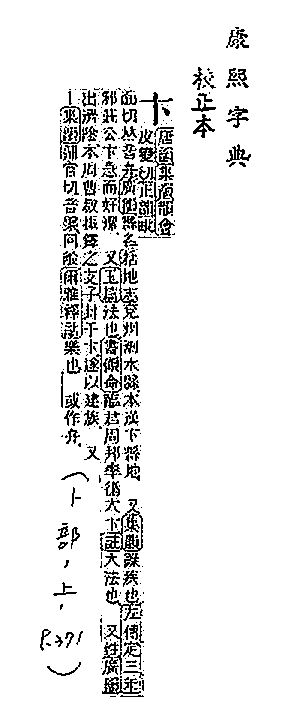 康熙字典
校正本
卞 唐韻集韻韻會
皮變切正韻毗
面切𠀤音弁廣韻縣名括地志兖州泗水縣本漢卞縣地 又集韻躁疾也左傳定三年
邾莊公卞急而好潔 又玉篇法也書顧命臨君周邦率循大卞註大法也 又姓廣韻
出濟陰本周曹叔振鐸之支子封于卞遂以建族 又
集韻蒲官切音槃同般爾雅釋詁樂也 或作弁
(卜部,上,P.371)